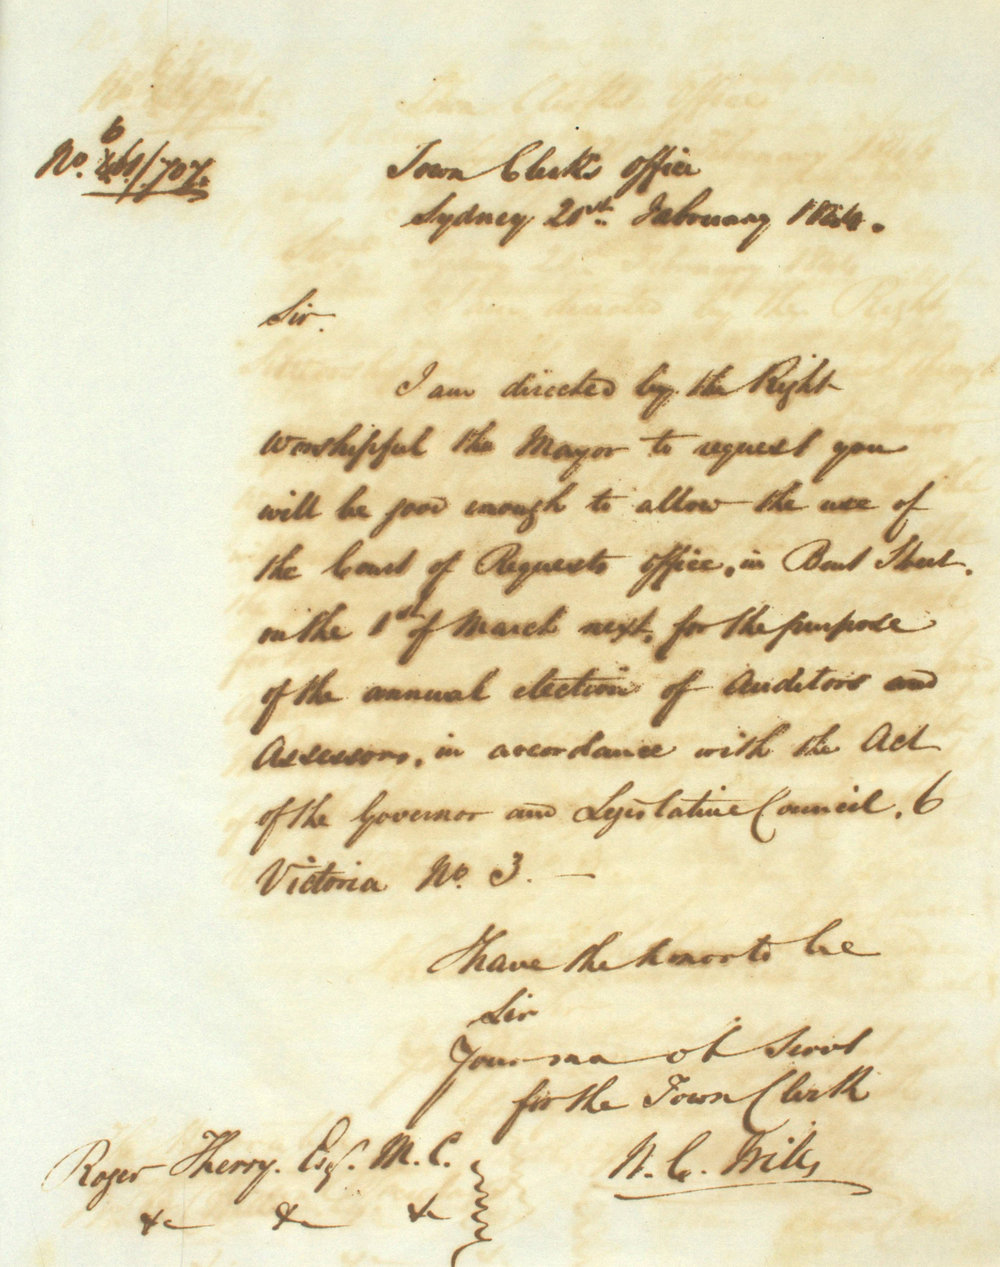 No. 6/707.
Town Clerk's Office
Sydney 21st February 1844.
Sir.
I am directed by the Right
Worshipful the Mayor to request you
will be good enough to allow the use of
the Court of Requests office, in Bent Street.
on the 1st of March next, for the purpose
of the annual election of Auditors and
Assessors, in accordance with the Act
of the Governor and Legislative Council. 6
Victoria No. 3. —
I have the honor to be
Sir
Your mo ob Servt
for the Town Clerk
Roger Therry. Esq. M. C.
&c &c &c